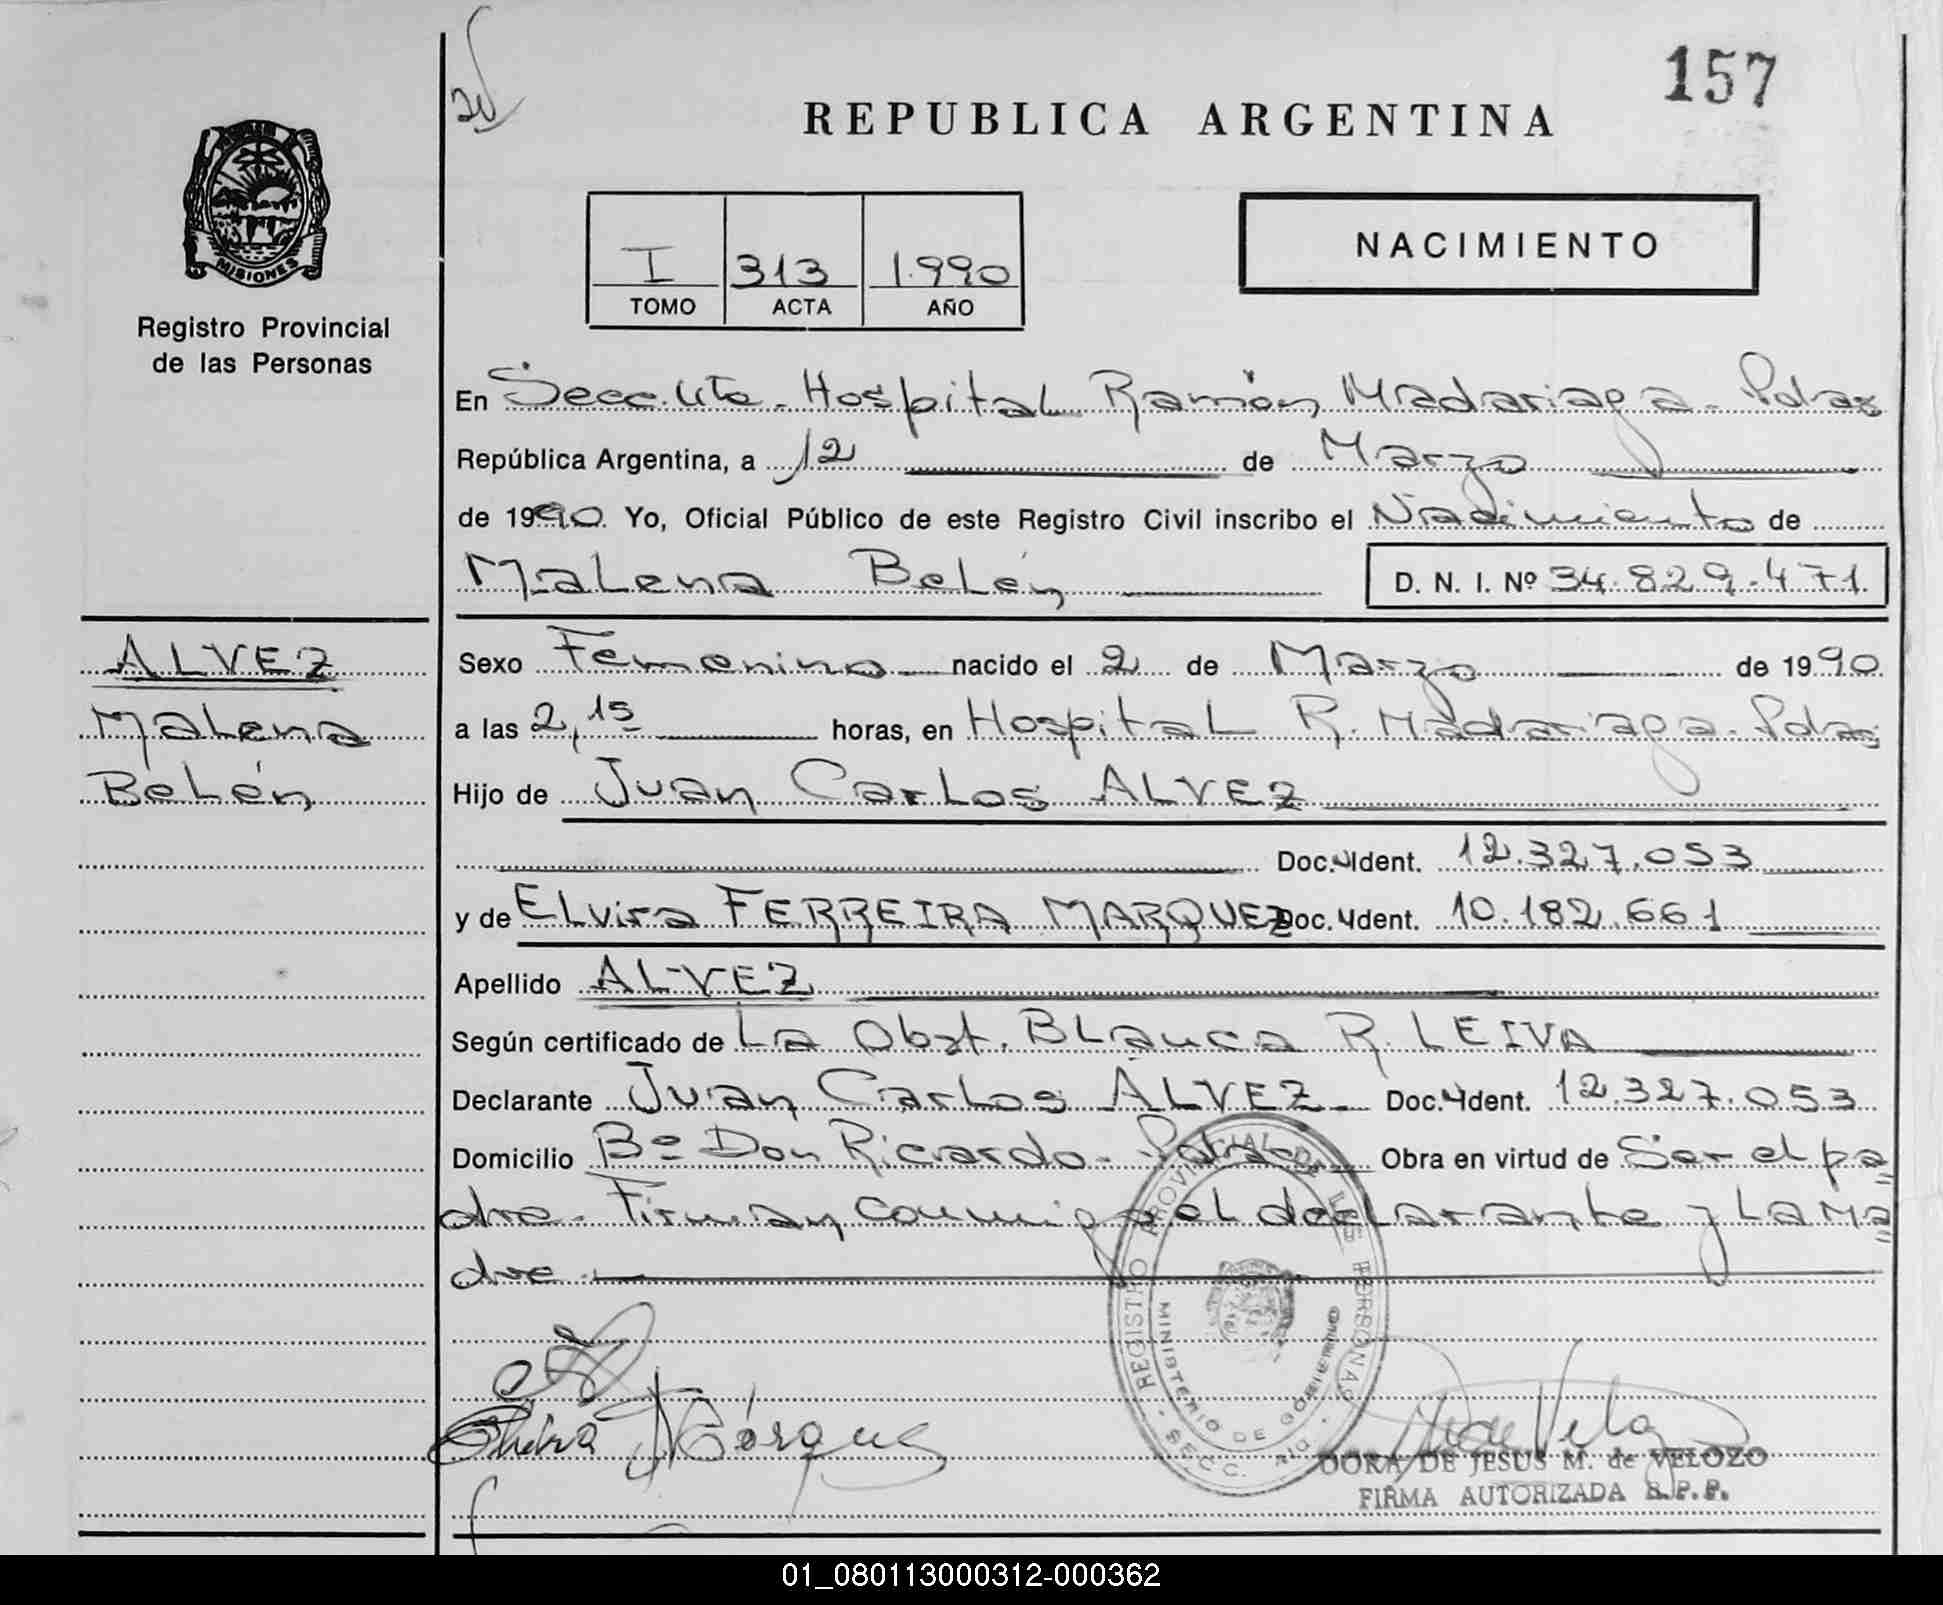 157
REPUBLICA ARGENTINA
MISIONES
Registro Provincial
de las Personas
I 313 1.990
TOMO ACTA AÑO
NACIMIENTO
En Secc. 4ta. Hospital Ramón Madariaga - Pdas
República Argentina, a 12 de Marzo
de 1990. Yo, Oficial Público de este Registro Civil inscribo el Nacimiento de
Malena Belén D. N. I. Nº 34.829.471
ALVEZ
Malena
Belén
Sexo Femenino nacido el 2 de Marzo de 1990
a las 2,15 horas, en Hospital R. Madariaga - Pdas
Hijo de Juan Carlos ALVEZ
Doc. Ident. 12.327.053
y de Elvira FERREIRA MARQUEZ Doc. Ident. 10.182.661
Apellido ALVEZ
Según certificado de La Obst. Blanca R. LEIVA
Declarante Juan Carlos ALVEZ - Doc. Ident. 12.327.053
Domicilio Bº Don Ricardo - Pdas Obra en virtud de Ser el pa
dre. Firman conmigo el declarante y la ma
dre
REGISTRO PROVINCIAL DE LAS PERSONAS
MINISTERIO DE GOBIERNO
SECC. 4ta
Elvira Márquez
DORA DE JESUS M. de VELOZO
FIRMA AUTORIZADA R.P.P.
01_080113000312-000362